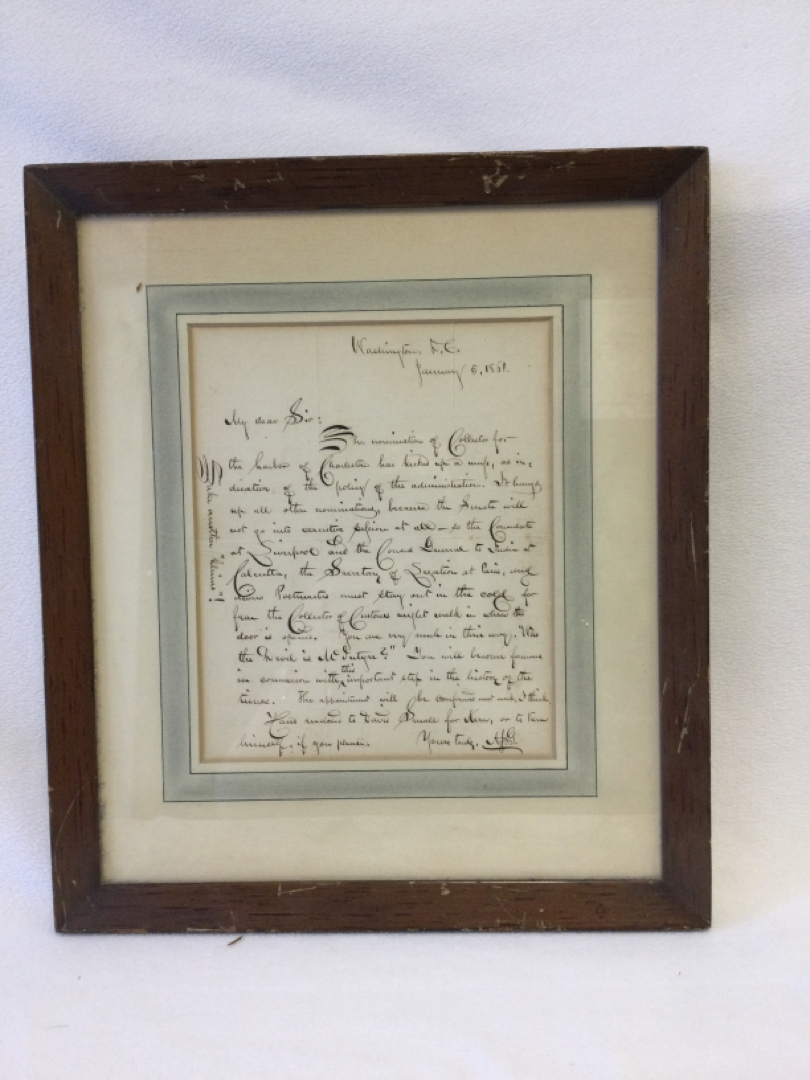 Washington, D.C.
January 6, 18
My dear Sir:
The nomination of Collector for
the harbor of Charleston has kicked up a muss, as in-
dication of the policy of the administration. It hangs
up all other nominations, because the Senate will
not go into executive session at all – so the Consulate
at Liverpool and the Consul General to India at
Calcutta, the Secretary of Legation at Paris, and
various Postmasters must stay out in the cold for
fear the Collector of Customs might walk in when the
door is opened. You are very much in this way. "Who
the Devil is McIntyre?" You will become famous
in connexion with this important step in the history of the
times. The appointment will be confirmed next week, I think.
Have to Davis for , or to
himself, if you please.
Yours truly,
Make another !